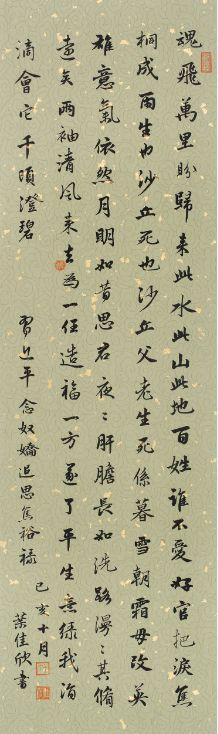 魂飛萬里盼歸來此水此山此地百姓誰不愛好官把淚焦
桐成雨生也沙丘死也沙丘父老生死係暮雪朝霜毋改英
雄意氣依然月明如昔思君夜〻肝膽長如洗路漫〻其脩
遠矣兩袖清風來去為一任造福一方遂了平生意綠我涓
滴會它千頃澄碧
習近平念奴嬌追思焦裕祿
己亥十月
葉佳欣書